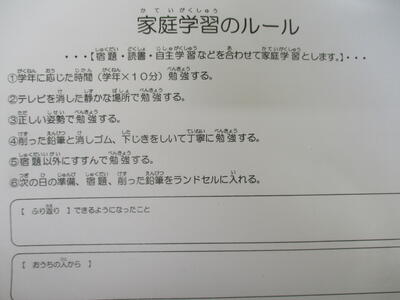 家庭学習のルール
・・・【宿題・読書・自主学習などを合わせて家庭学習とします。】・・・
①学年に応じた時間（学年×１０分）勉強する。
②テレビを消した静かな場所で勉強する。
③正しい姿勢で勉強する。
④削った鉛筆と消しゴム、下じきをしいて丁寧に勉強する。
⑤宿題以外にすすんで勉強する。
⑥次の日の準備、宿題、削った鉛筆をランドセルに入れる。
【 ふり返り 】できるようになったこと
【 おうちの人から 】